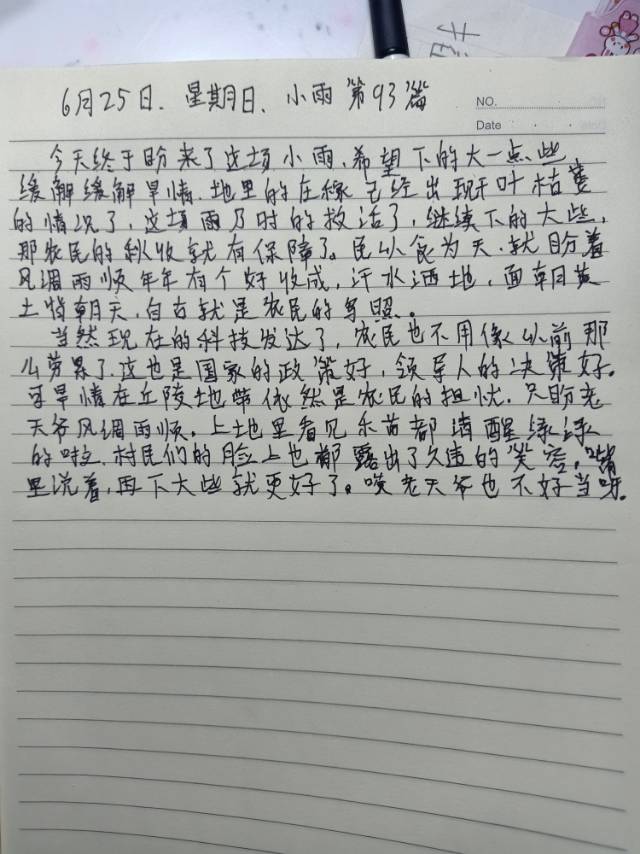 6月25日.星期日.小雨 第93篇
NO.
Date
今天终于盼来了这场小雨,希望下的大一点些
缓解缓解旱情.地里的庄稼已经出现叶枯萎
的情况了,这场雨乃时的救活了,继续下的大些,
那农民的秋收就有保障了。民以食为天.就盼着
风调雨顺年年有个好收成,汗水洒地,面朝黄
土背朝天,自古就是农民的写照。
当然现在的科技发达了,农民也不用像以前那
么劳累了.这也是国家的政策好,领导人的决策好.
可旱情在丘陵地带依然是农民的担忧.只盼老
天爷风调雨顺.上地里看见禾苗都清醒绿绿
的啦.村民们的脸上也都露出了久违的笑容,嘴
里说着,再下大些就更好了。唉老天爷也不好当呀.